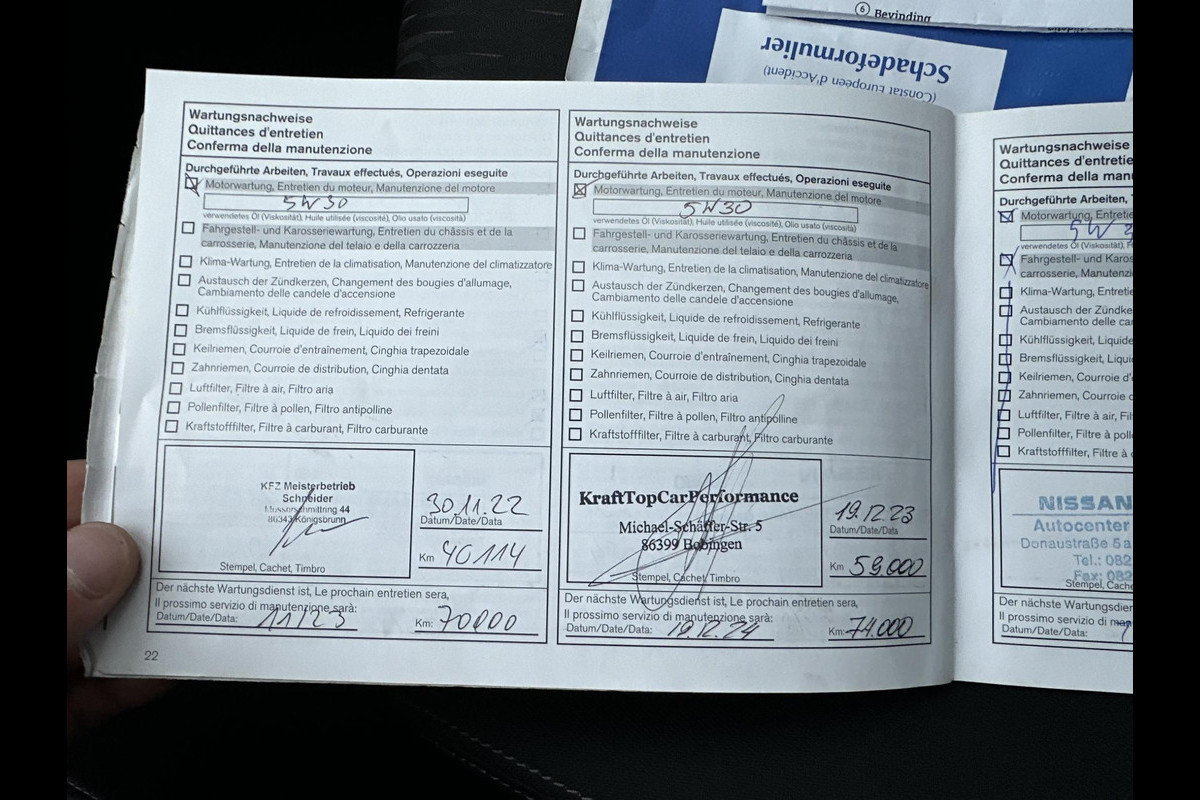 ⑥ Bevinding
Schadeformulier
(Constat Européen d'Accident)
Wartungsnachweise
Quittances d'entretien
Conferma della manutenzione
Durchgeführte Arbeiten, Travaux effectués, Operazioni eseguite
Motorwartung, Entretien du moteur, Manutenzione del motore
5W30
verwendetes Öl (Viskosität), Huile utilisée (viscosité), Olio usato (viscosità)
Fahrgestell- und Karosseriewartung, Entretien du châssis et de la
carrosserie, Manutenzione del telaio e della carrozzeria
Klima-Wartung, Entretien de la climatisation, Manutenzione del climatizzatore
Austausch der Zündkerzen, Changement des bougies d'allumage,
Cambiamento delle candele d'accensione
Kühlflüssigkeit, Liquide de refroidissement, Refrigerante
Bremsflüssigkeit, Liquide de frein, Liquido dei freini
Keilriemen, Courroie d'entraînement, Cinghia trapezoidale
Zahnriemen, Courroie de distribution, Cinghia dentata
Luftfilter, Filtre à air, Filtro aria
Pollenfilter, Filtre à pollen, Filtro antipolline
Kraftstofffilter, Filtre à carburant, Filtro carburante
KFZ Meisterbetrieb
Schneider
44
86343 Königsbrunn
Stempel, Cachet, Timbro
30.11.22
Datum/Date/Data
Km 40114
Der nächste Wartungsdienst ist, Le prochain entretien sera,
Il prossimo servizio di manutenzione sarà:
Datum/Date/Data: 11/23 Km: 70000
22
Wartungsnachweise
Quittances d'entretien
Conferma della manutenzione
Durchgeführte Arbeiten, Travaux effectués, Operazioni eseguite
Motorwartung, Entretien du moteur, Manutenzione del motore
5W30
verwendetes Öl (Viskosität), Huile utilisée (viscosité), Olio usato (viscosità)
Fahrgestell- und Karosseriewartung, Entretien du châssis et de la
carrosserie, Manutenzione del telaio e della carrozzeria
Klima-Wartung, Entretien de la climatisation, Manutenzione del climatizzatore
Austausch der Zündkerzen, Changement des bougies d'allumage,
Cambiamento delle candele d'accensione
Kühlflüssigkeit, Liquide de refroidissement, Refrigerante
Bremsflüssigkeit, Liquide de frein, Liquido dei freini
Keilriemen, Courroie d'entraînement, Cinghia trapezoidale
Zahnriemen, Courroie de distribution, Cinghia dentata
Luftfilter, Filtre à air, Filtro aria
Pollenfilter, Filtre à pollen, Filtro antipolline
Kraftstofffilter, Filtre à carburant, Filtro carburante
KraftTopCarPerformance
Michael-Schäffer-Str. 5
86399 Bobingen
Stempel, Cachet, Timbro
19.12.23
Datum/Date/Data
Km 59.000
Der nächste Wartungsdienst ist, Le prochain entretien sera,
Il prossimo servizio di manutenzione sarà:
Datum/Date/Data: 19.12.24 Km: 74.000
Wartungsnachweise
Quittances d'entretie
Conferma della man
Durchgeführte Arbeite
Motorwartung, Entretie
5W
verwendetes Öl (Viskosität), H
Fahrgestell- und Karos
carrosserie, Manutenzi
Klima-Wartung, Entreti
Austausch der Zündke
Cambiamento delle ca
Kühlflüssigkeit, Liquide
Bremsflüssigkeit, Liqui
Keilriemen, Courroie d
Zahnriemen, Courroie
Luftfilter, Filtre à air, Fil
Pollenfilter, Filtre à poll
Kraftstofffilter, Filtre à
NISSAN
Autocenter
Donaustraße 5a
Tel.: 082
Fax: 082
Stempel, Cache
Der nächste Wartungsdier
Il prossimo servizio di man
Datum/Date/Data: